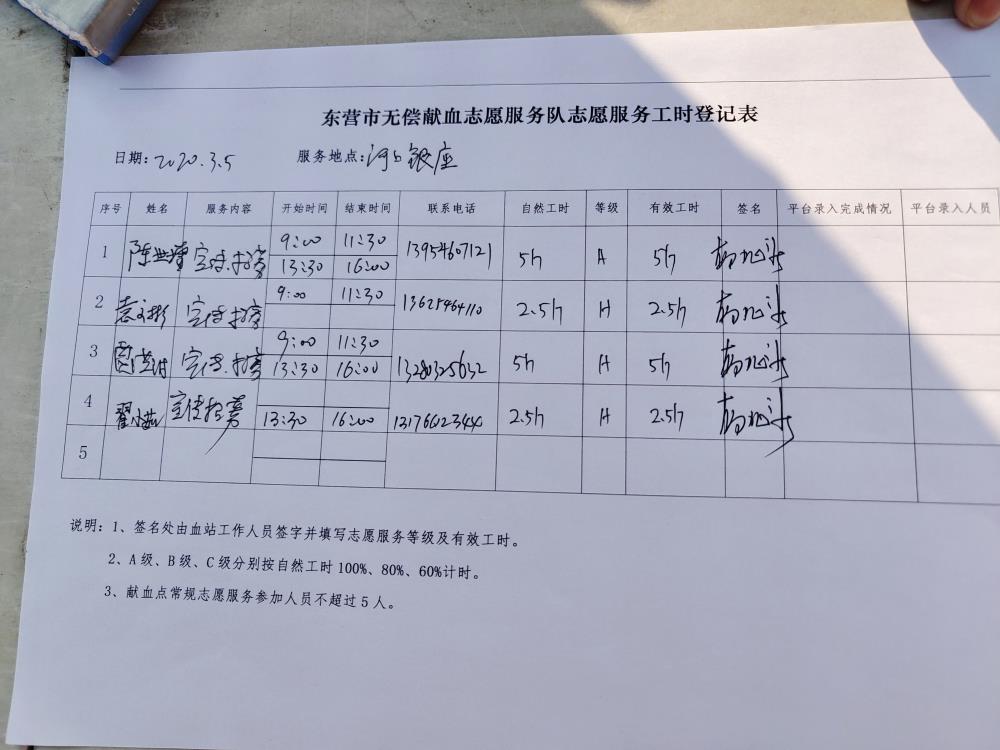 东营市无偿献血志愿服务队志愿服务工时登记表
日期:2020.3.5 服务地点:河口银座
序号 姓名 服务内容 开始时间 结束时间 联系电话 自然工时 等级 有效工时 签名 平台录入完成情况 平台录入人员
1 宣传.招募 9:00 11:30 13954607121 5h A 5h
13:30 16:00
2 袁文彬 宣传招募 9:00 11:30 13625464110 2.5h A 2.5h
3 宣传.招募 9:00 11:30 13280325632 5h A 5h
13:30 16:00
4 翟小燕 宣传招募 13:30 16:00 2.5h A 2.5h
5
说明:1、签名处由血站工作人员签字并填写志愿服务等级及有效工时。
2、A级、B级、C级分别按自然工时100%、80%、60%计时。
3、献血点常规志愿服务参加人员不超过5人。